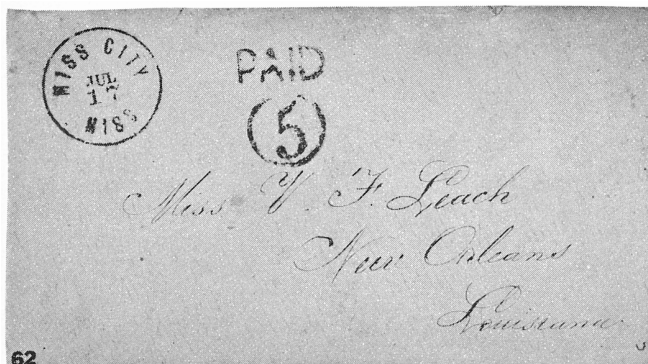 MISS CITY
JUL
17
MISS
PAID
5
Miss V. F. Leach
New Orleans
Louisiana
62